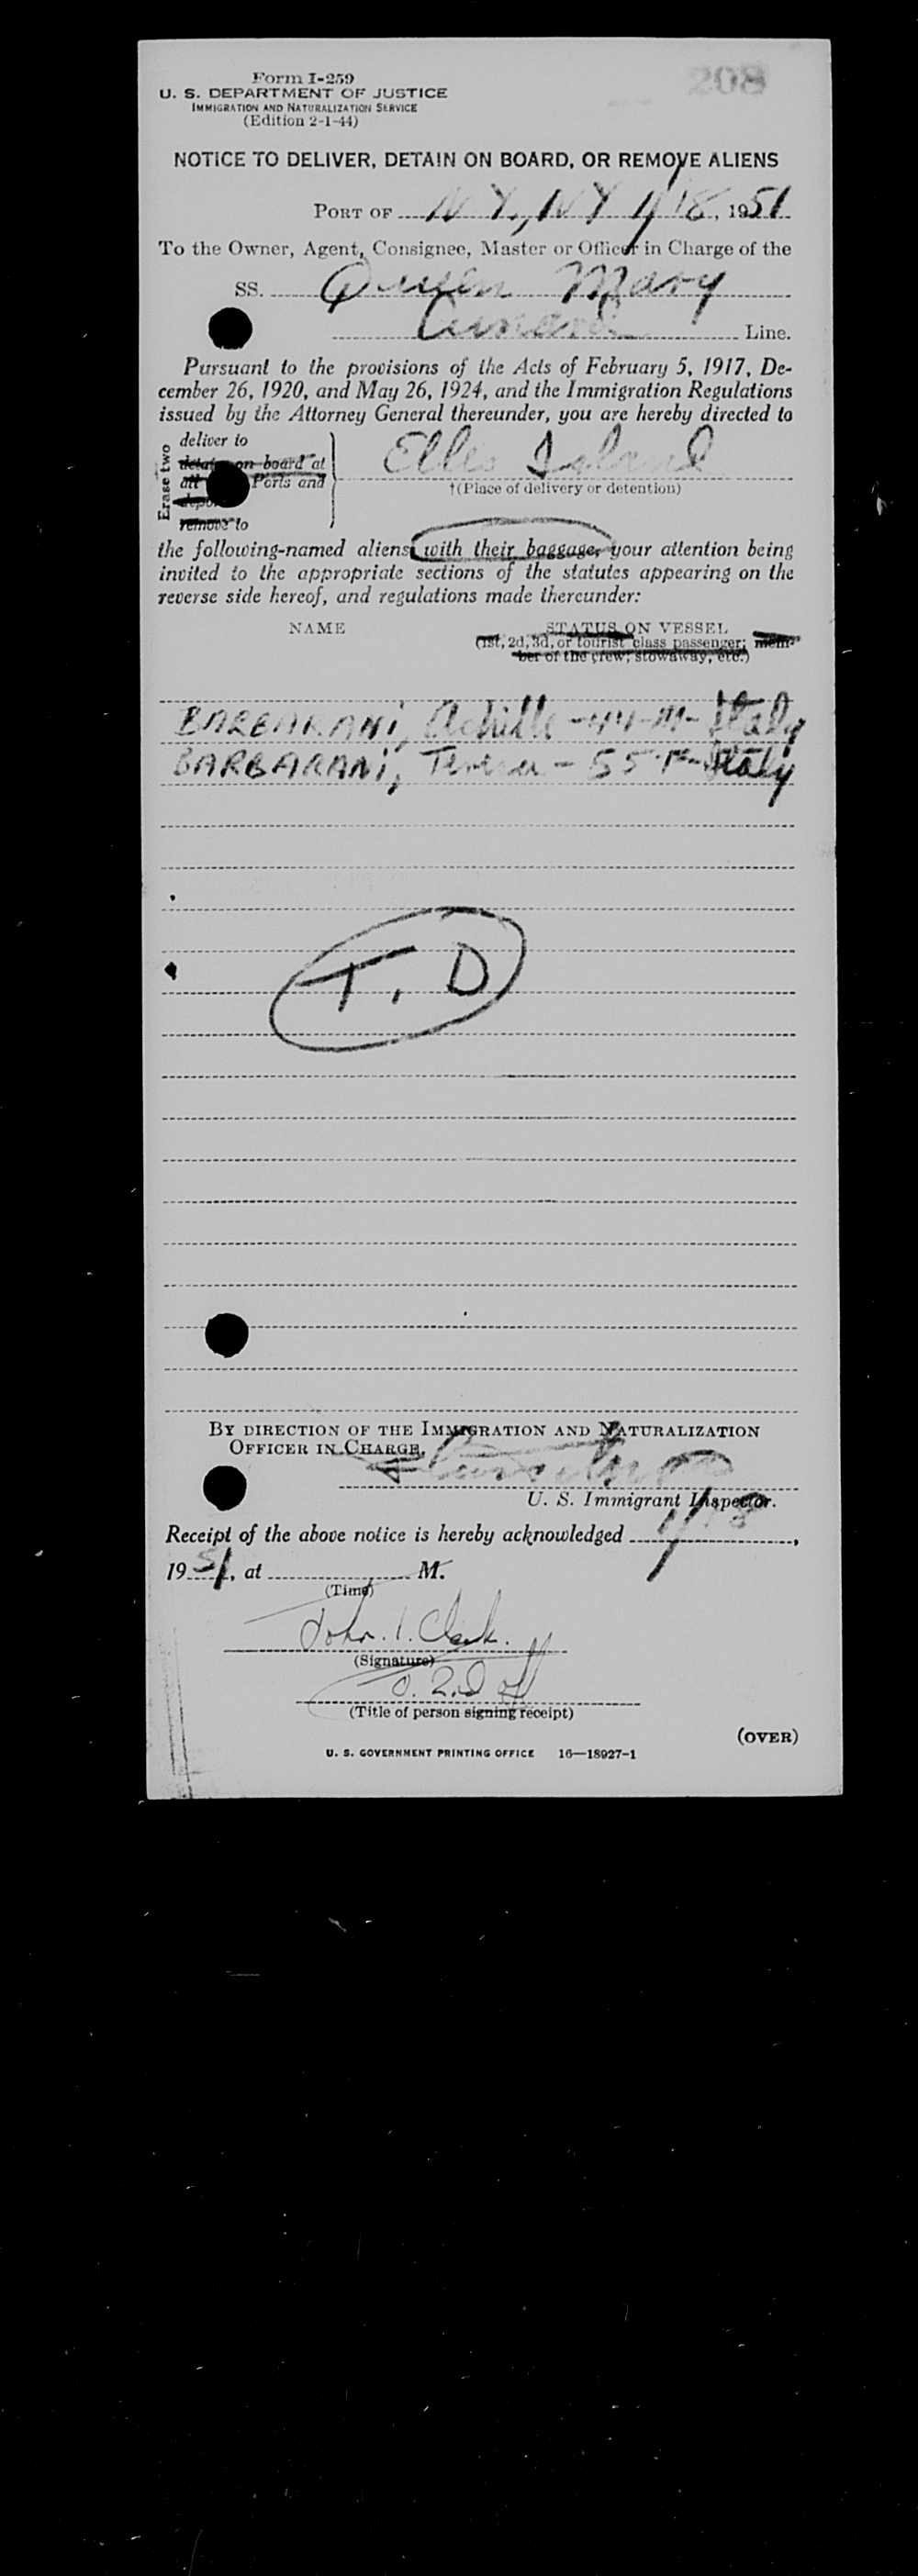 208
Form I-259
U. S. DEPARTMENT OF JUSTICE
IMMIGRATION AND NATURALIZATION SERVICE
(Edition 2-1-44)
NOTICE TO DELIVER, DETAIN ON BOARD, OR REMOVE ALIENS
PORT OF N Y., N Y 1/18, 1951
To the Owner, Agent, Consignee, Master or Officer in Charge of the
SS. Queen Mary
Cunard Line.
Pursuant to the provisions of the Acts of February 5, 1917, De-
cember 26, 1920, and May 26, 1924, and the Immigration Regulations
issued by the Attorney General thereunder, you are hereby directed to
Erase two
deliver to
detain on board at
all Ports and
remove to
Ellis Island
†(Place of delivery or detention)
the following-named aliens with their baggage, your attention being
invited to the appropriate sections of the statutes appearing on the
reverse side hereof, and regulations made thereunder:
NAME STATUS ON VESSEL
(1st, 2d, 3d, or tourist class passenger; mem-
ber of the crew; stowaway, etc.)
BARBARANI, Achille - 44-M- Italy
BARBARANI, Teresa - 55 F- Italy
T. D
BY DIRECTION OF THE IMMIGRATION AND NATURALIZATION
OFFICER IN CHARGE.
U. S. Immigrant Inspector.
Receipt of the above notice is hereby acknowledged 1/18,
1951, at M.
(Time)
John. I. Clark.
(Signature)
2nd off
(Title of person signing receipt)
(OVER)
U. S. GOVERNMENT PRINTING OFFICE 16—18927-1